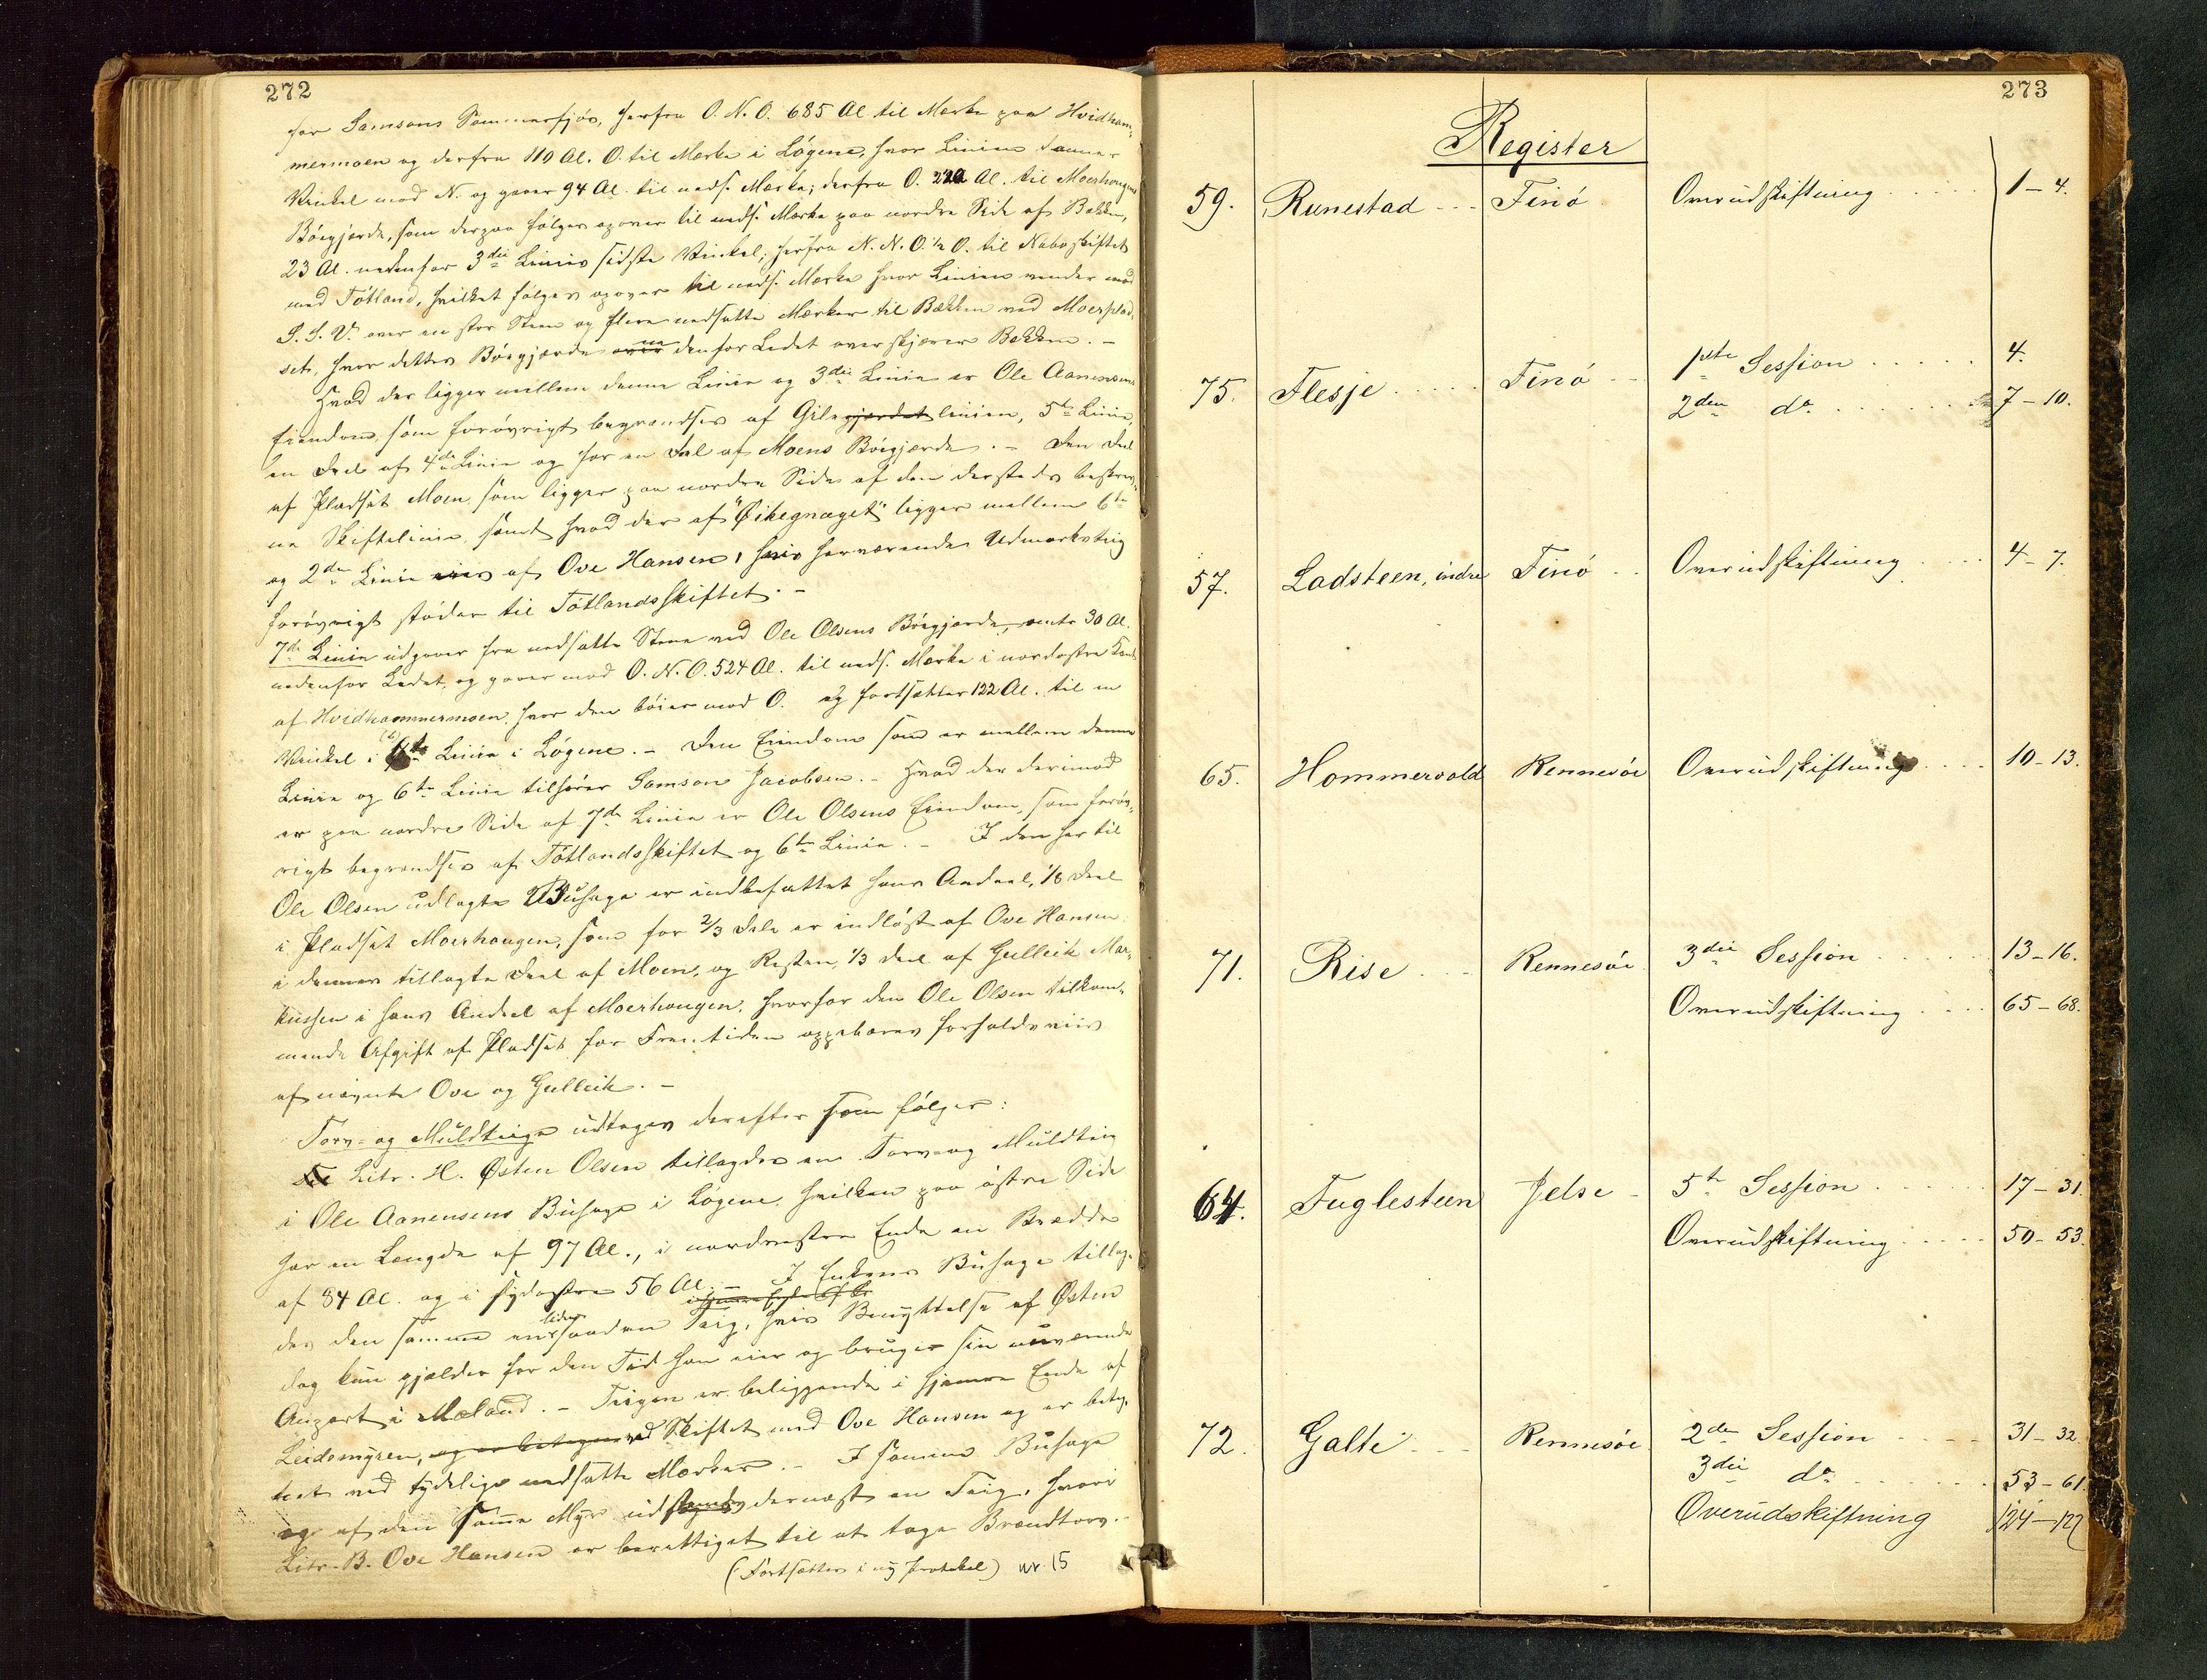 272
for Samsons Sommerfjøs, herfra O. N. O. 685 Al til Mærke paa Hvidham-
mermoen og derfra 110 Al. O. til Mærke i Løgene, hvor Linien danner
Vinkel mod N. og gaaer 94 Al. til neds. Mærke; derfra O. 220 Al. til Moerhougens
Bøegjærde, som derpaa følges opover til neds. Mærke paa nordre Side af Bækken,
23 Al. nedenfor 3die Linies sidste Vinkel; herfra N. N. O. ½ O. til Naboskiftet
med Tøtland, hvilket følges opover til neds. Mærke hvor Linien vender mod
S. S. V. over en stor Steen og flere nedsatte Mærker til Bækken ved Moerplad-
set, hvor dettes Bøegjærde nedenfor Ledet overskjærer Bækken. -
Hvad der ligger mellem denne Linie og 3die Linie er Ole Aanensens
Eiendom, som forøvrigt begrændses af Gilegjærdet linien, 5te Linie,
en Deel af 4de Linie og for en Deel af Moens Bøegjærde. - Den Deel
af Pladset Moen, som ligger paa nordre Side af den dersteds beskrev-
ne Skiftelinie, samt hvad der af "Øikegnaget" ligger mellem 6te
og 2den Linie eies af Ove Hansen, hvis herværende Udmarksteig
forøvrigt støder til Tøtlandsskiftet. -
7de Linie udgaaer fra nedsatte Steen ved Ole Olsens Bøegjærde, omtr 30 Al.
nedenfor Ledet, og gaaer mod O. N. O. 524 Al. til neds. Mærke i nordøstre Kant
af Hvidhammermoen, hvor den bøier mod O. og fortsætter 122 Al. til en
Vinkel i 6te Linie i Løgene. - Den Eiendom som er mellem denne
Linie og 6te Linie tilhører Samson Jacobsen. - Hvad der derimod
er paa nordre Side af 7de Linie er Ole Olsens Eiendom, som forøv-
rigt begrændses af Tøtlandsskiftet og 6te Linie. - I den her til
Ole Olsen udlagte Buhage er indbefattet hans Andeel, 1/8 Deel
i Pladset Moerhougen, som for 2/3 Dele er indløst af Ove Hansen
i dennes tillagte Deel af Moen, og Resten, 1/3 Deel af Gulleik Mar-
kussen i hans Andeel af Moerhougen, hvorfor den Ole Olsen tilkom-
mende Afgift af Pladset for Fremtiden oppebæres forholdsviis
af nævnte Ove og Gulleik. -
Torv- og Muldteige udtages derefter som følger:
Litr. H. Østen Olsen tillagdes en Torv- og Muldteig
i Ole Aanensens Buhage i Løgene, hvilken paa østre Side
har en Længde af 97 Al., i nordvestre Ende en Bredde
af 84 Al. og i sydøstre 56 Al. - I Enkens Buhage tillag-
des den samme en saadan Teig, hvis Benyttelse af Østen
dog kun gjælder for den Tid han eier og bruger sin nuværende
Anpart i Mæland. - Teigen er beliggende i hjemre Ende af
Leidemyren, og er betegnet ved Skiftet med Ove Hansen og er beteg-
net ved tydelige nedsatte Mærker. - I samme Buhage
og af den samme Myr udskiftedes dernæst en Teig, hvori
Litr. B. Ove Hansen er berettiget til at tage Brændtorv. -
(Fortsættes i ny Protokol) nr. 15
273
Register
59. Runestad - - Finö Overudskiftning 1 - 4.
75. Flesje Finö 1ste Session 4.
2den do 7 - 10.
57. Ladsteen, indre Finö Overudskiftning 4 - 7.
65. Hommersold Rennesöe Overudskiftning 10 - 13.
71. Rise Rennesöe 3die Session 13 - 16.
Overudskiftning 65 - 68.
64. Fuglesteen Jelse 5te Session 17 - 31.
Overudskiftning 50 - 53.
72. Galte Rennesöe 2den Session 31 - 32.
3die do 53 - 61.
Overudskiftning 124 - 127